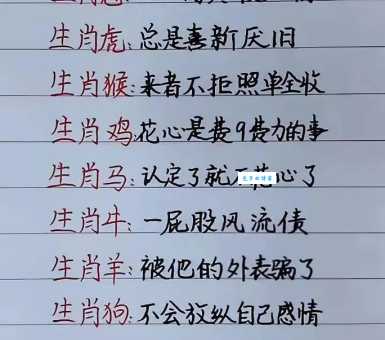 生肖虎:总是喜新厌旧
生肖猴:来者不拒照单全收
生肖鸡:花心是费9费力的事
生肖马:认定了就不花心了
生肖牛:一屁股风流债
生肖羊:被他的外表骗了
生肖狗:不会放纵自己感情